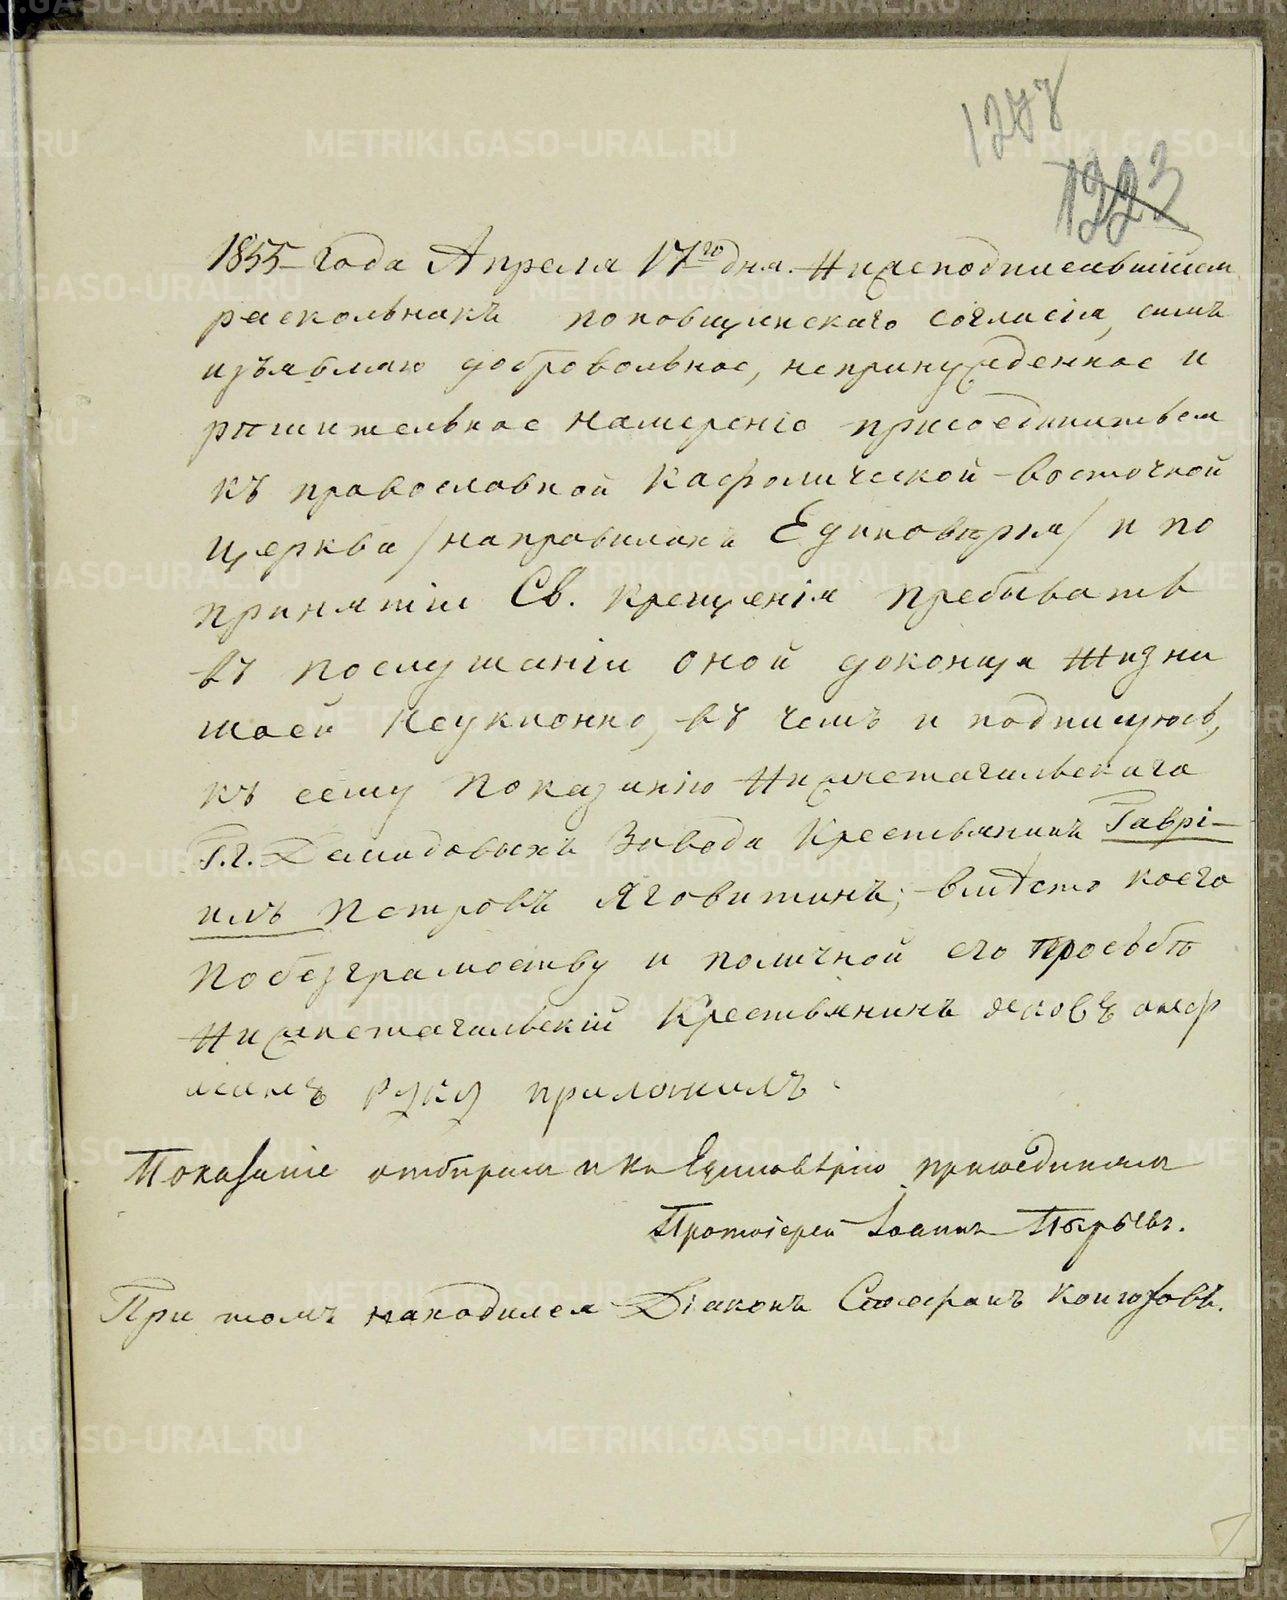 1223
1855 года Апреля 17го дня. Нижеподписавшiйся
раскольникъ поповщинскаго согласiя, симъ
изъявляю добровольное, непринужденное и
рѣшительное намеренiе присоединиться
къ православной Кафолической восточной
Церкви /направилахъ Единовѣрiя/ и по
принятiи Св. Крещенiя пребывать
въ послушанiи оной доконца жизни
моей неуклонно, въ чемъ и подпишусь,
къ сему показанiю Нижнетагильскаго
Г.г. Демидовыхъ Завода Крестьянинъ Гаврi-
илъ Петровъ Яговитинъ; вмѣсто коего
побезграмотству и поличной его просьбѣ
Нижнетагильскiй Крестьянинъ Яковъ
руку приложилъ.
Показанiе отбиралъ и къ Единовѣрiю присоединялъ
Протоiерей Iоаннъ Пырьевъ.
При томъ находился Дiаконъ Стефанъ Конюховъ.
METRIKI.GASO-URAL.RU